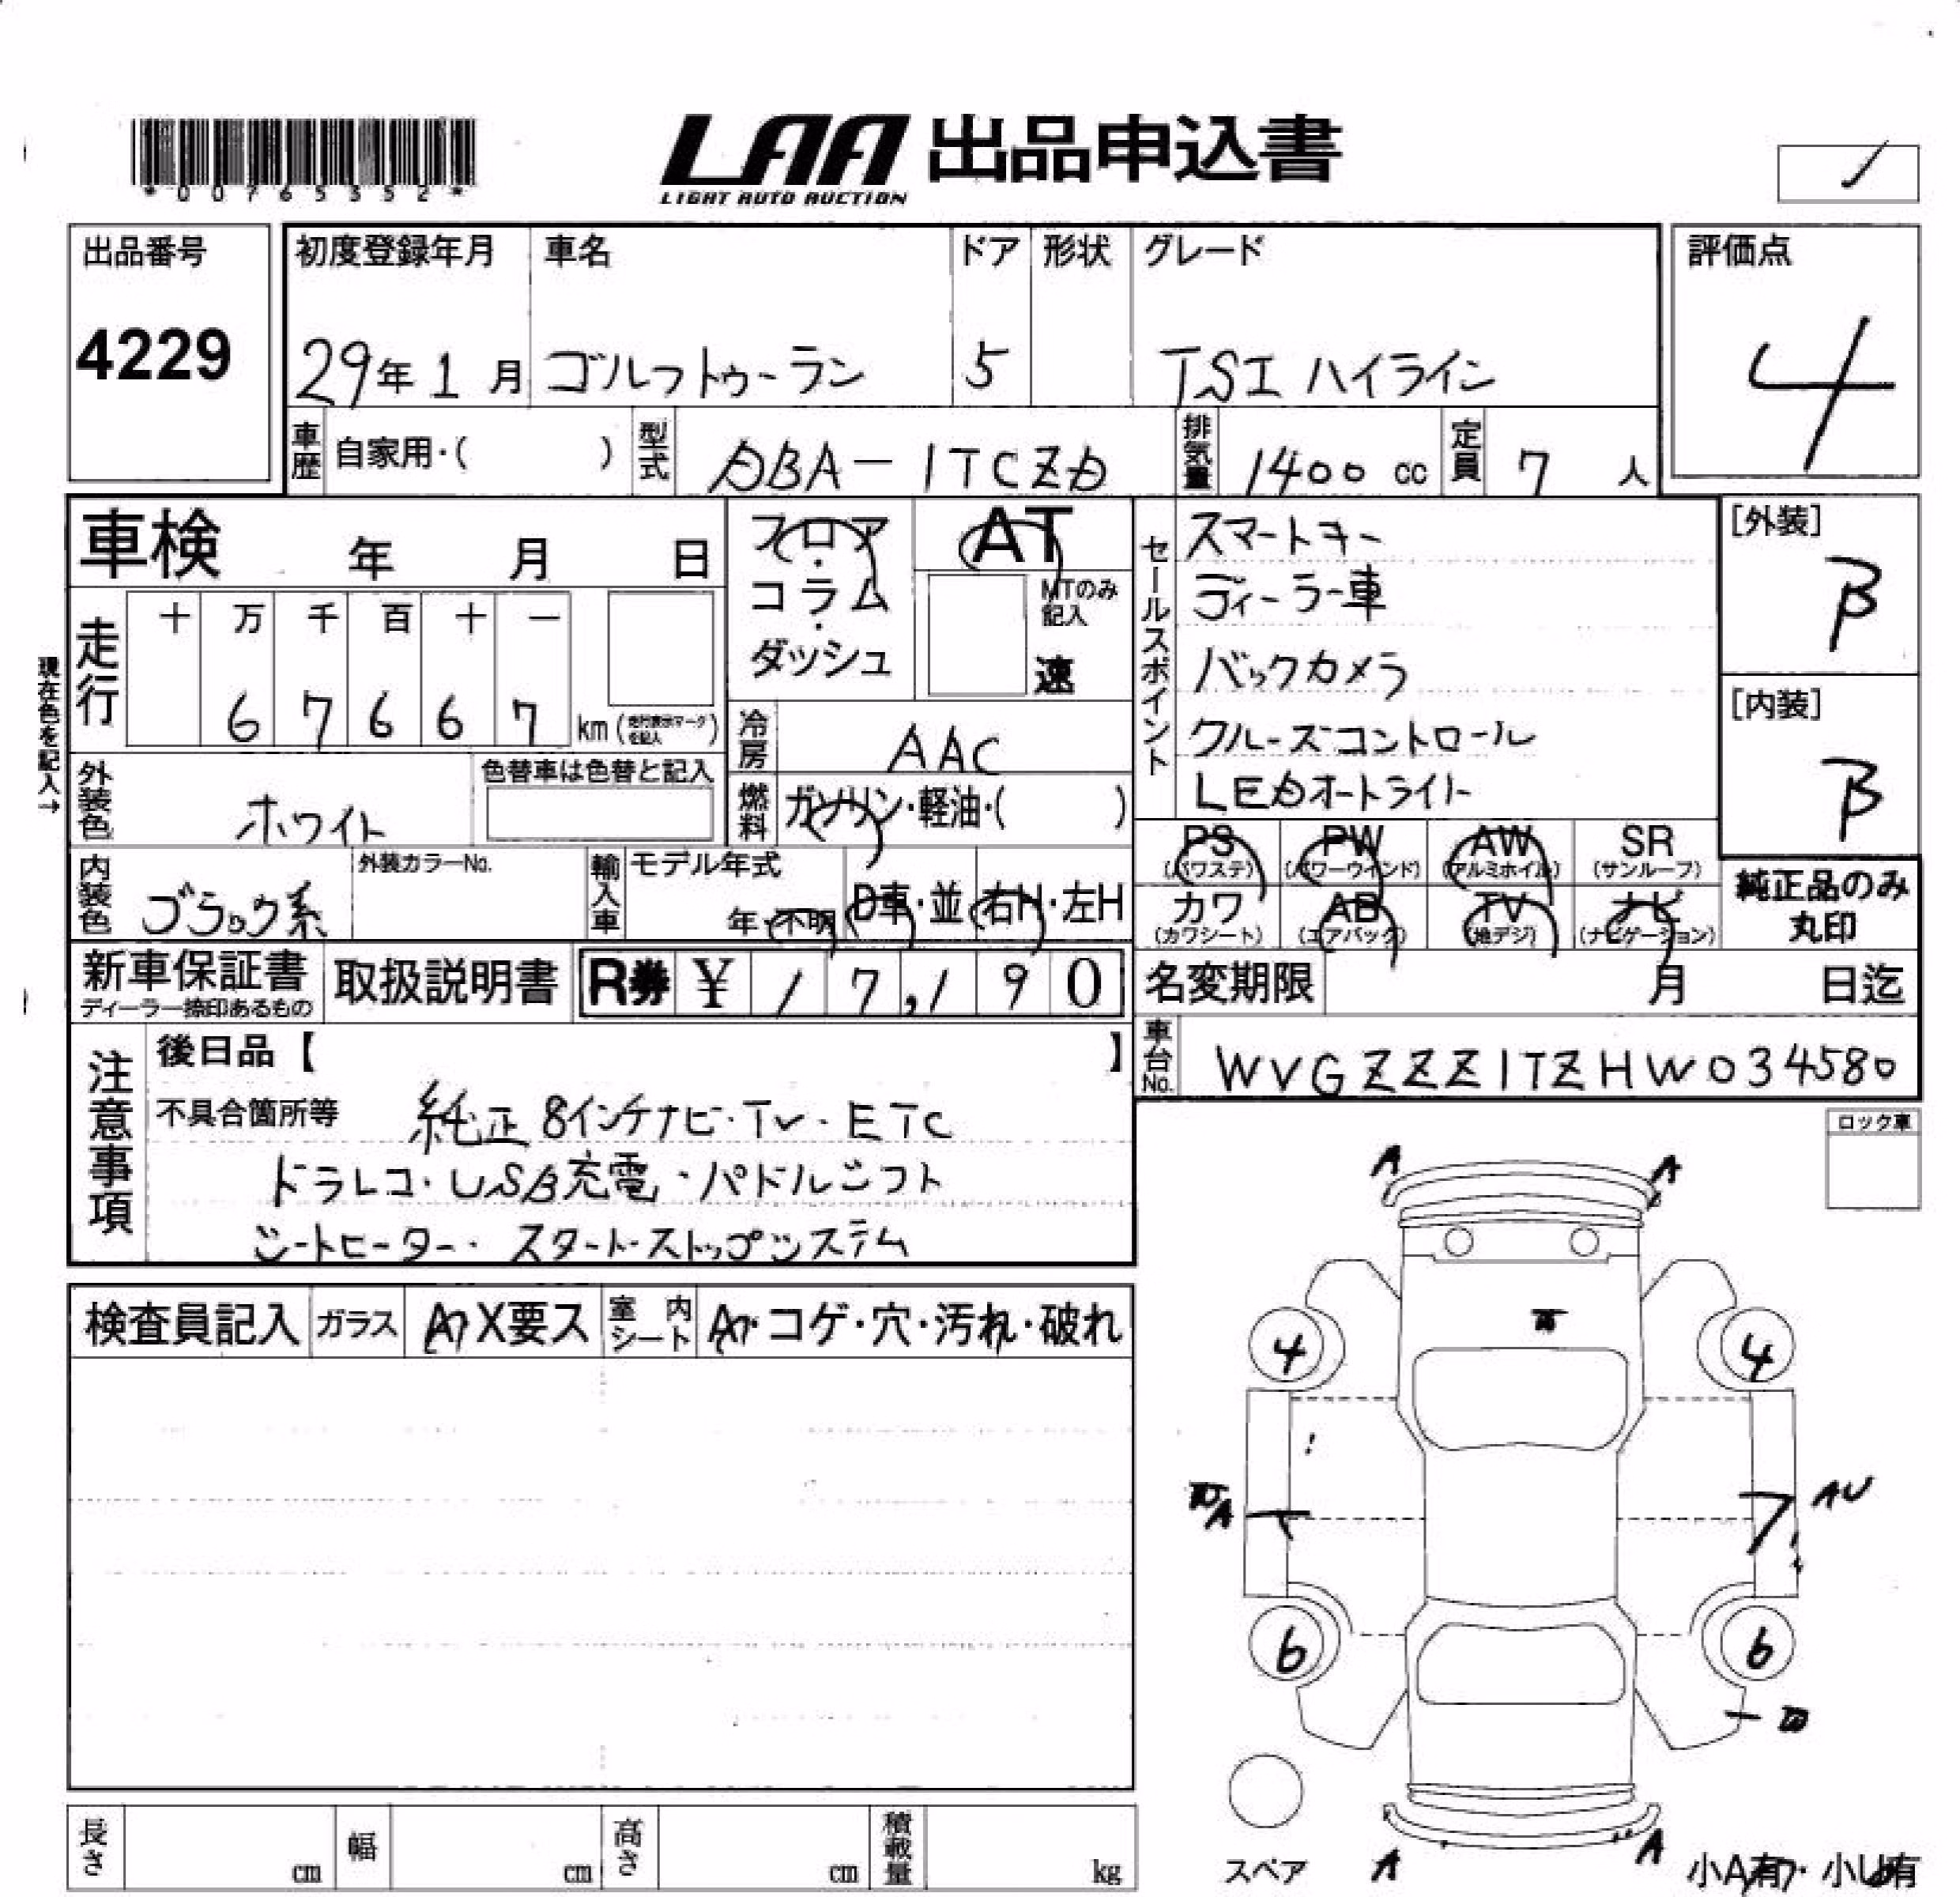 *00765352*
LAA 出品申込書
LIGHT AUTO AUCTION
出品番号
4229
初度登録年月 車名 ドア 形状 グレード
29年 1月 ゴルフトゥーラン 5 TSI ハイライン
評価点
4
車歴 自家用・( ) 型式 DBA-1TCZD 排気量 1400 cc 定員 7 人
車検 年 月 日
フロア・コラム・ダッシュ
AT
MTのみ記入
速
セールスポイント
スマートキー
ディーラー車
バックカメラ
クルーズコントロール
LEDオートライト
[外装]
B
[内装]
B
現在色を記入→
走行 十 万 千 百 十 一
6 7 6 6 7 km (走行表示マークを記入)
冷房 AAC
燃料 ガソリン・軽油・( )
外装色 ホワイト 色替車は色替と記入
内装色 ブラック系 外装カラーNo.
輸入車 モデル年式 年・不明 D車・並 右H・左H
PS (パワステ) PW (パワーウインド) AW (アルミホイル) SR (サンルーフ)
カワ (カワシート) AB (エアバック) TV (地デジ) ナビ (ナビゲーション)
純正品のみ
丸印
新車保証書 取扱説明書 R券 ¥ 17,190
ディーラー捺印あるもの
名変期限 月 日迄
車台No. WVGZZZ1TZHW034580
注意事項
後日品【 】
不具合箇所等 純正8インチナビ・TV・ETC
ドラレコ・USB充電・パドルシフト
シートヒーター・スタートストップシステム
ロック車
検査員記入 ガラス A X要ス 室内シート コゲ・穴・汚れ・破れ
A A
4 4
A AU
6 6
A A
スペア
小A有・小U有
長さ cm 幅 cm 高さ cm 積載量 kg